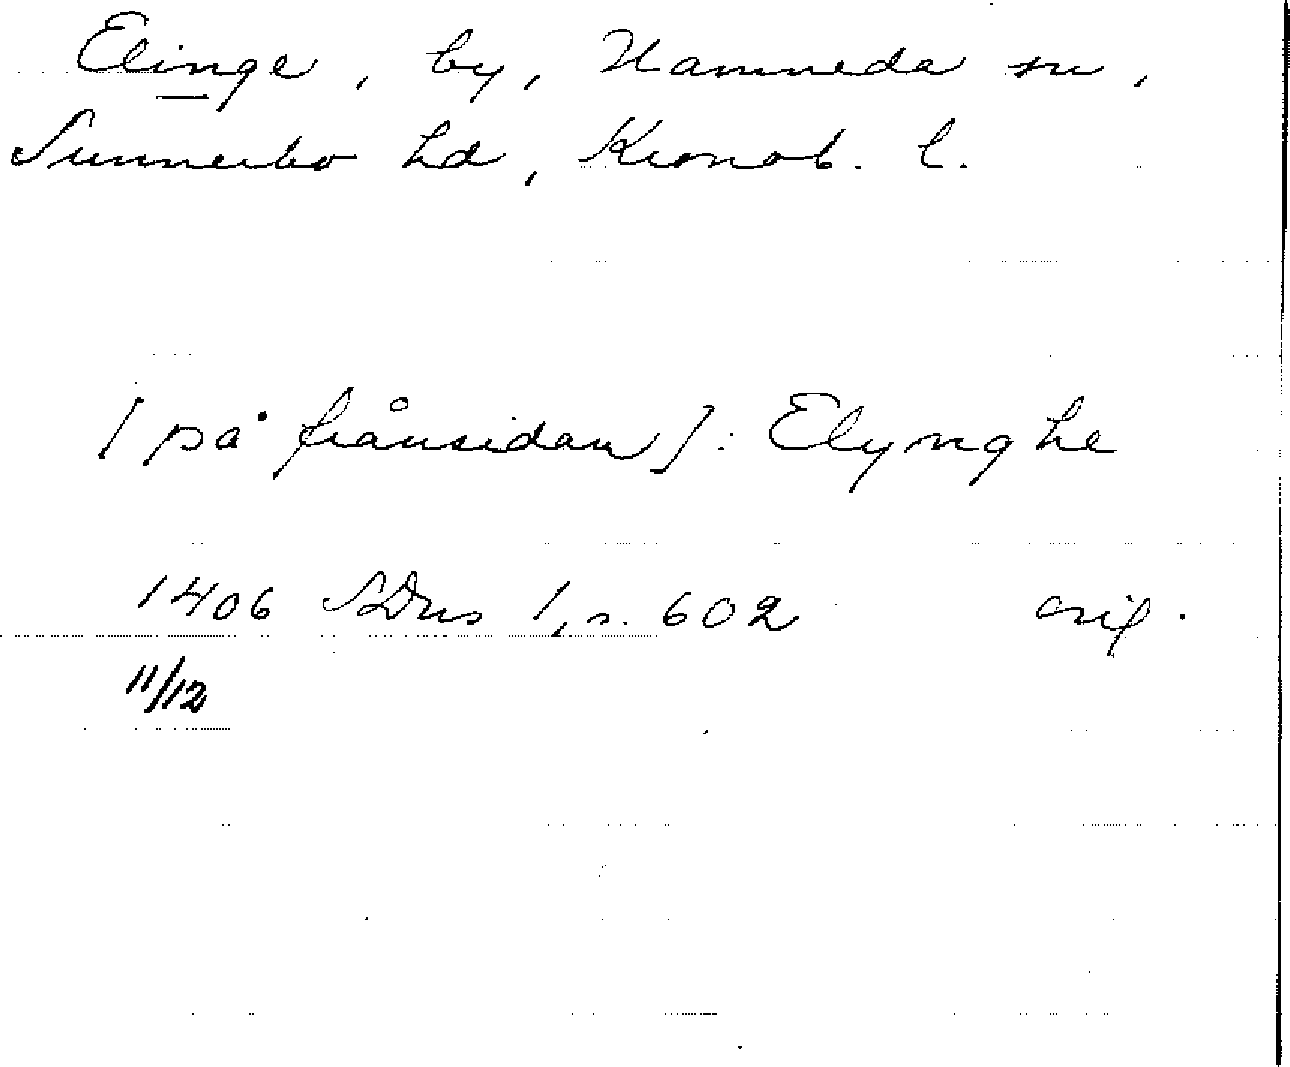 Elinge, by, Hamneda sn,
Sunnerbo hd, Kronob. l.
[på frånsidan]: Elynghe
1406 SDns 1, s. 602 orig.
11/12